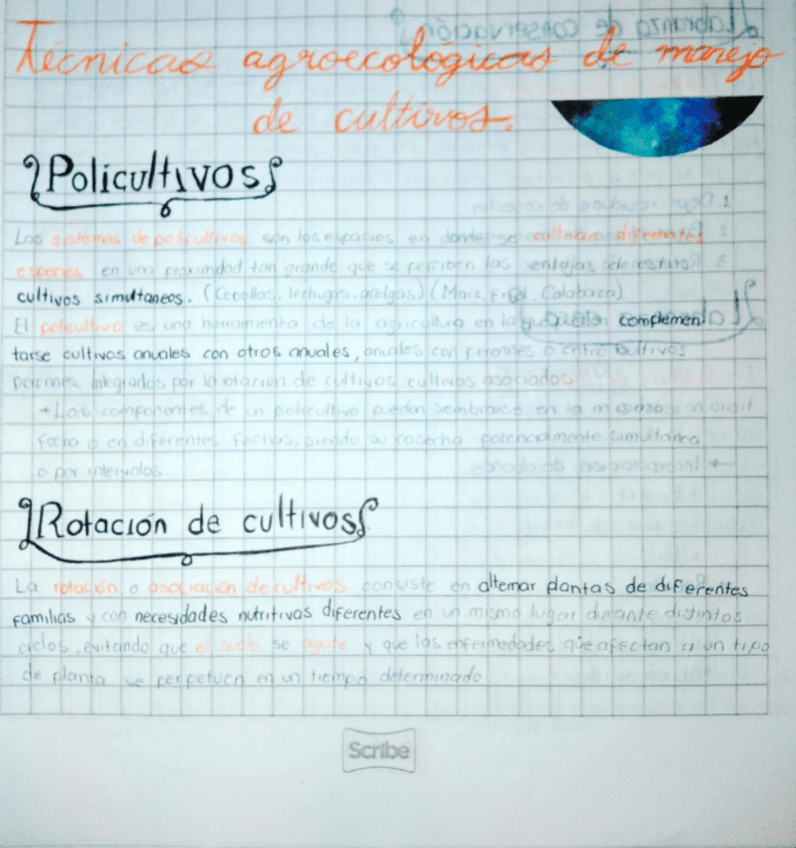 Técnicas agroecológicas de manejo
de cultivos.
Policultivos
Los sistemas de policultivos son los espacios en donde se cultivan diferentes
especies en una proximidad tan grande que se perciben las ventajas de estos
cultivos simultaneos. (Cebollas, lechugas, acelgas) (Maíz, Frijol, Calabaza)
El policultivo es una herramienta de la agricultura en la que complemen
tarse cultivos anuales con otros anuales, anuales con perennes o entre cultivos
perennes integrados por la rotación de cultivos, cultivos asociados.
Los componentes de un policultivo pueden sembrarse en la misma
fecha o en diferentes fechas, siendo su cosecha potencialmente simultánea
o por intervalos.
Rotación de cultivos
La rotación o asociación de cultivos consiste en alternar plantas de diferentes
familias y con necesidades nutritivas diferentes en un mismo lugar durante distintos
ciclos, evitando que el suelo se agote y que las enfermedades que afectan a un tipo
de planta se perpetuen en un tiempo determinado
Scribe